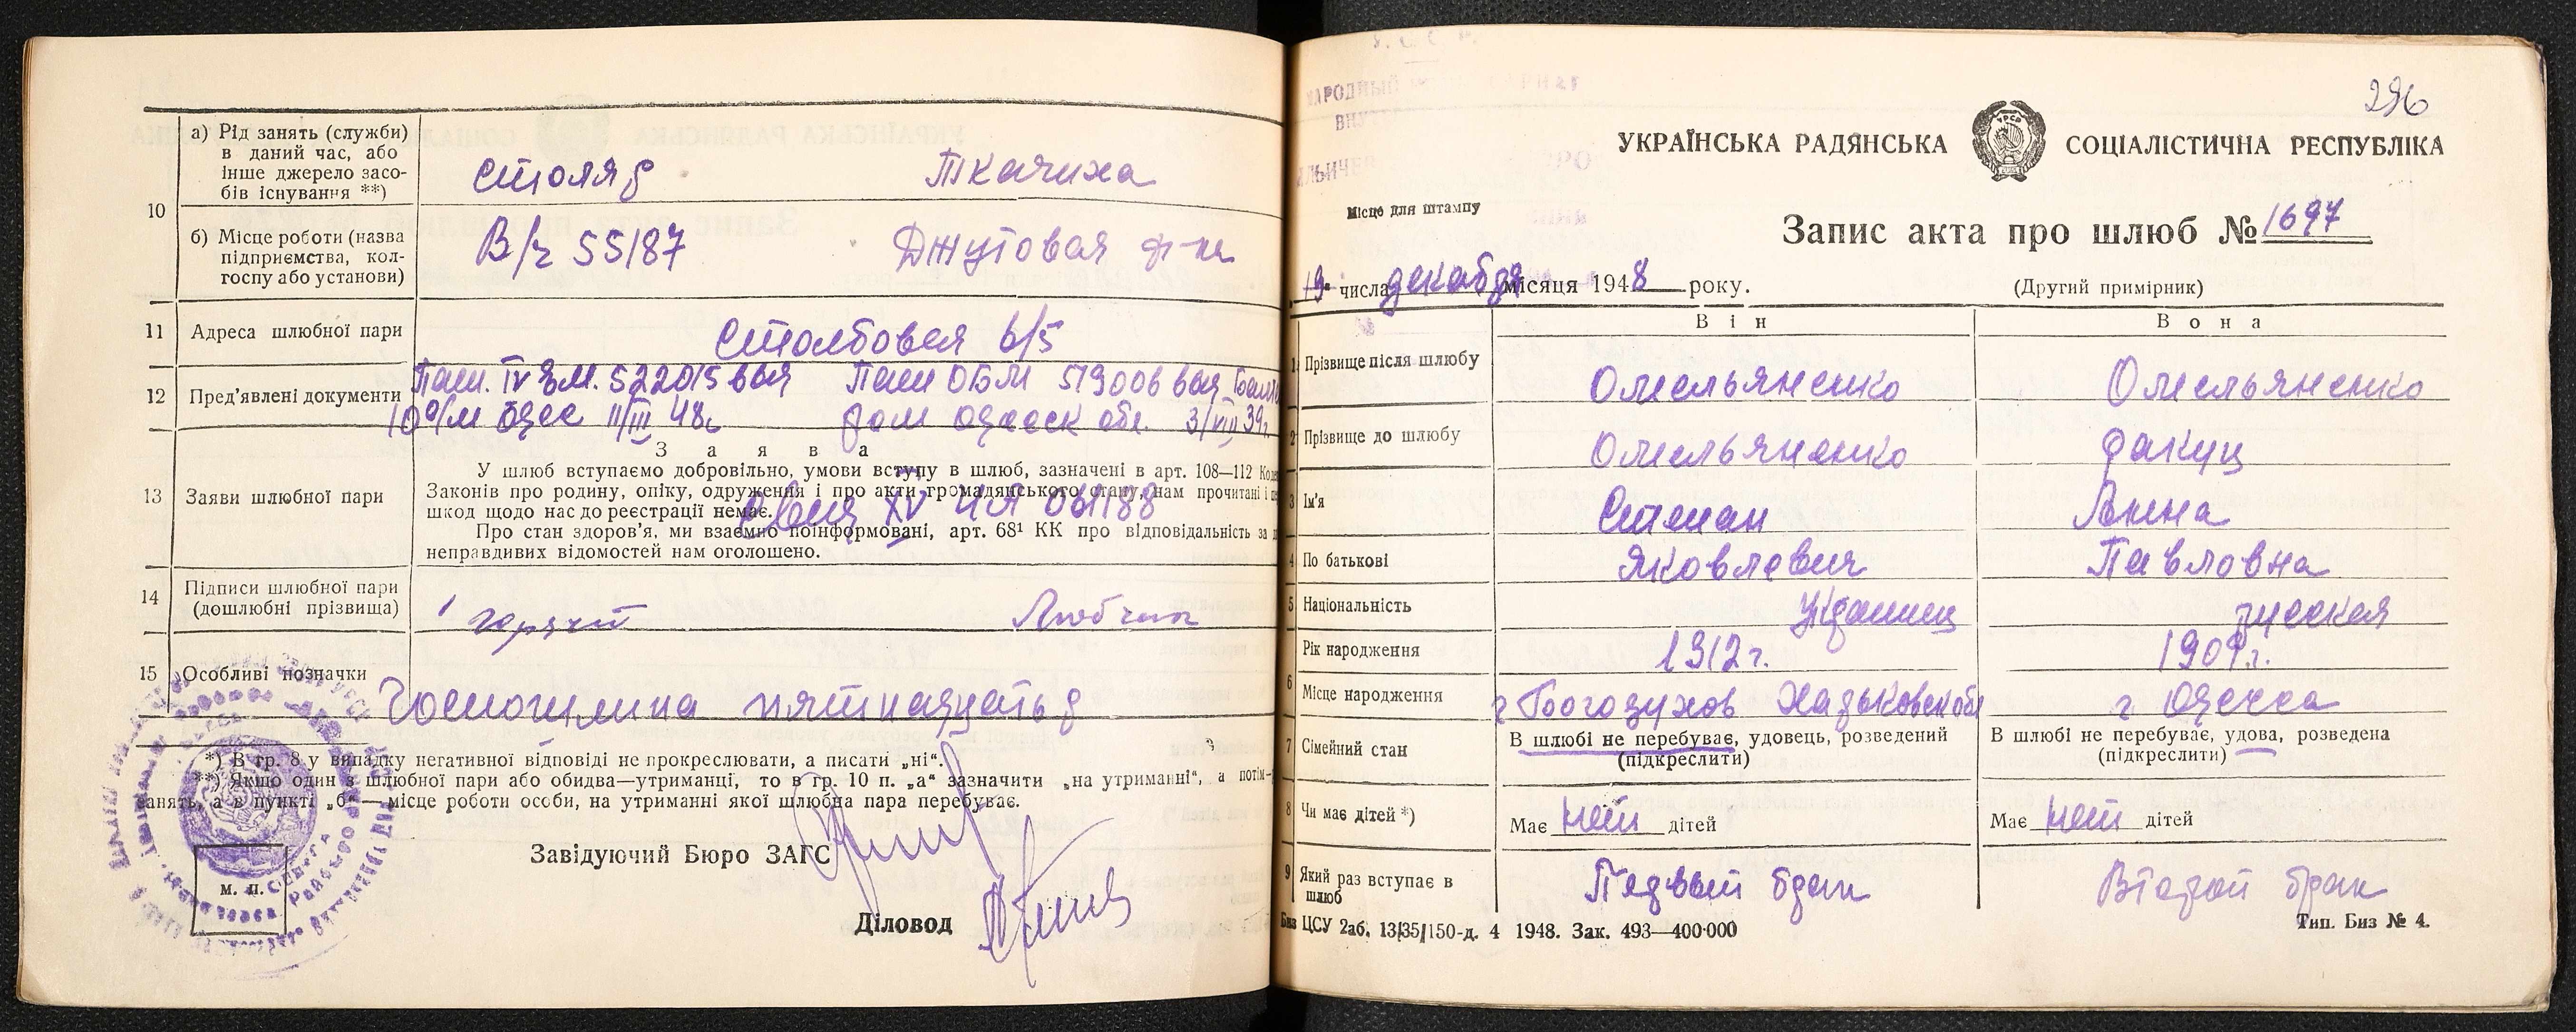 а) Рід занять (служби)
в даний час, або
інше джерело засо-
бів існування **)
столяр Ткачиха
10
б) Місце роботи (назва
підприємства, кол-
госпу або установи)
В/ч 55187 Джутовая ф-ка
11 Адреса шлюбної пари Столбовая 6/5
12 Пред'явлені документи
Пасп. IV ЯМ. 522015 выд Пасп ОБМ 519006 выд
10 о/м Одес 11/III 48г Одесск обл. 3/VIII 39г.
З а я в а
13 Заяви шлюбної пари
У шлюб вступаємо добровільно, умови вступу в шлюб, зазначені в арт. 108—112
Законів про родину, опіку, одруження і про акти громадянського стану, нам прочитані і
шкод щодо нас до реєстрації немає.
Про стан здоров'я, ми взаємно поінформовані, арт. 68¹ КК про відповідальність за
неправдивих відомостей нам оголошено.
XV 031188
14 Підписи шлюбної пари
(дошлюбні прізвища)
15 Особливі позначки
Госпошлина пятнадцать р
*) В гр. 8 у випадку негативної відповіді не прокреслювати, а писати „ні“.
**) Якщо один з шлюбної пари або обидва—утриманці, то в гр. 10 п. „а“ зазначити „на утриманні“, а потім—
занять, а в пункті „б“—місце роботи особи, на утриманні якої шлюбна пара перебуває.
Завідуючий Бюро ЗАГС
м. п.
Діловод
296
УКРАЇНСЬКА РАДЯНСЬКА СОЦІАЛІСТИЧНА РЕСПУБЛІКА
Місце для штампу
Запис акта про шлюб № 1697
19 числа декабря місяця 1948 року.
(Другий примірник)
Він Вона
1 Прізвище після шлюбу Омельяненко Омельяненко
2 Прізвище до шлюбу Омельяненко Факуц
3 Ім'я Степан Анна
4 По батькові Яковлевич Павловна
5 Національність Украинец русская
Рік народження 1912 г. 1909 г.
6
Місце народження г Богодухов Харьковск обл г Одесса
7 Сімейний стан
В шлюбі не перебуває, удовець, розведений В шлюбі не перебуває, удова, розведена
(підкреслити) (підкреслити)
8 Чи має дітей *) Має нет дітей Має нет дітей
9 Який раз вступає в
шлюб
Первый брак Второй брак
ЦСУ 2аб. 13/35/150-д. 4 1948. Зак. 493—400·000 Тип. Биз № 4.